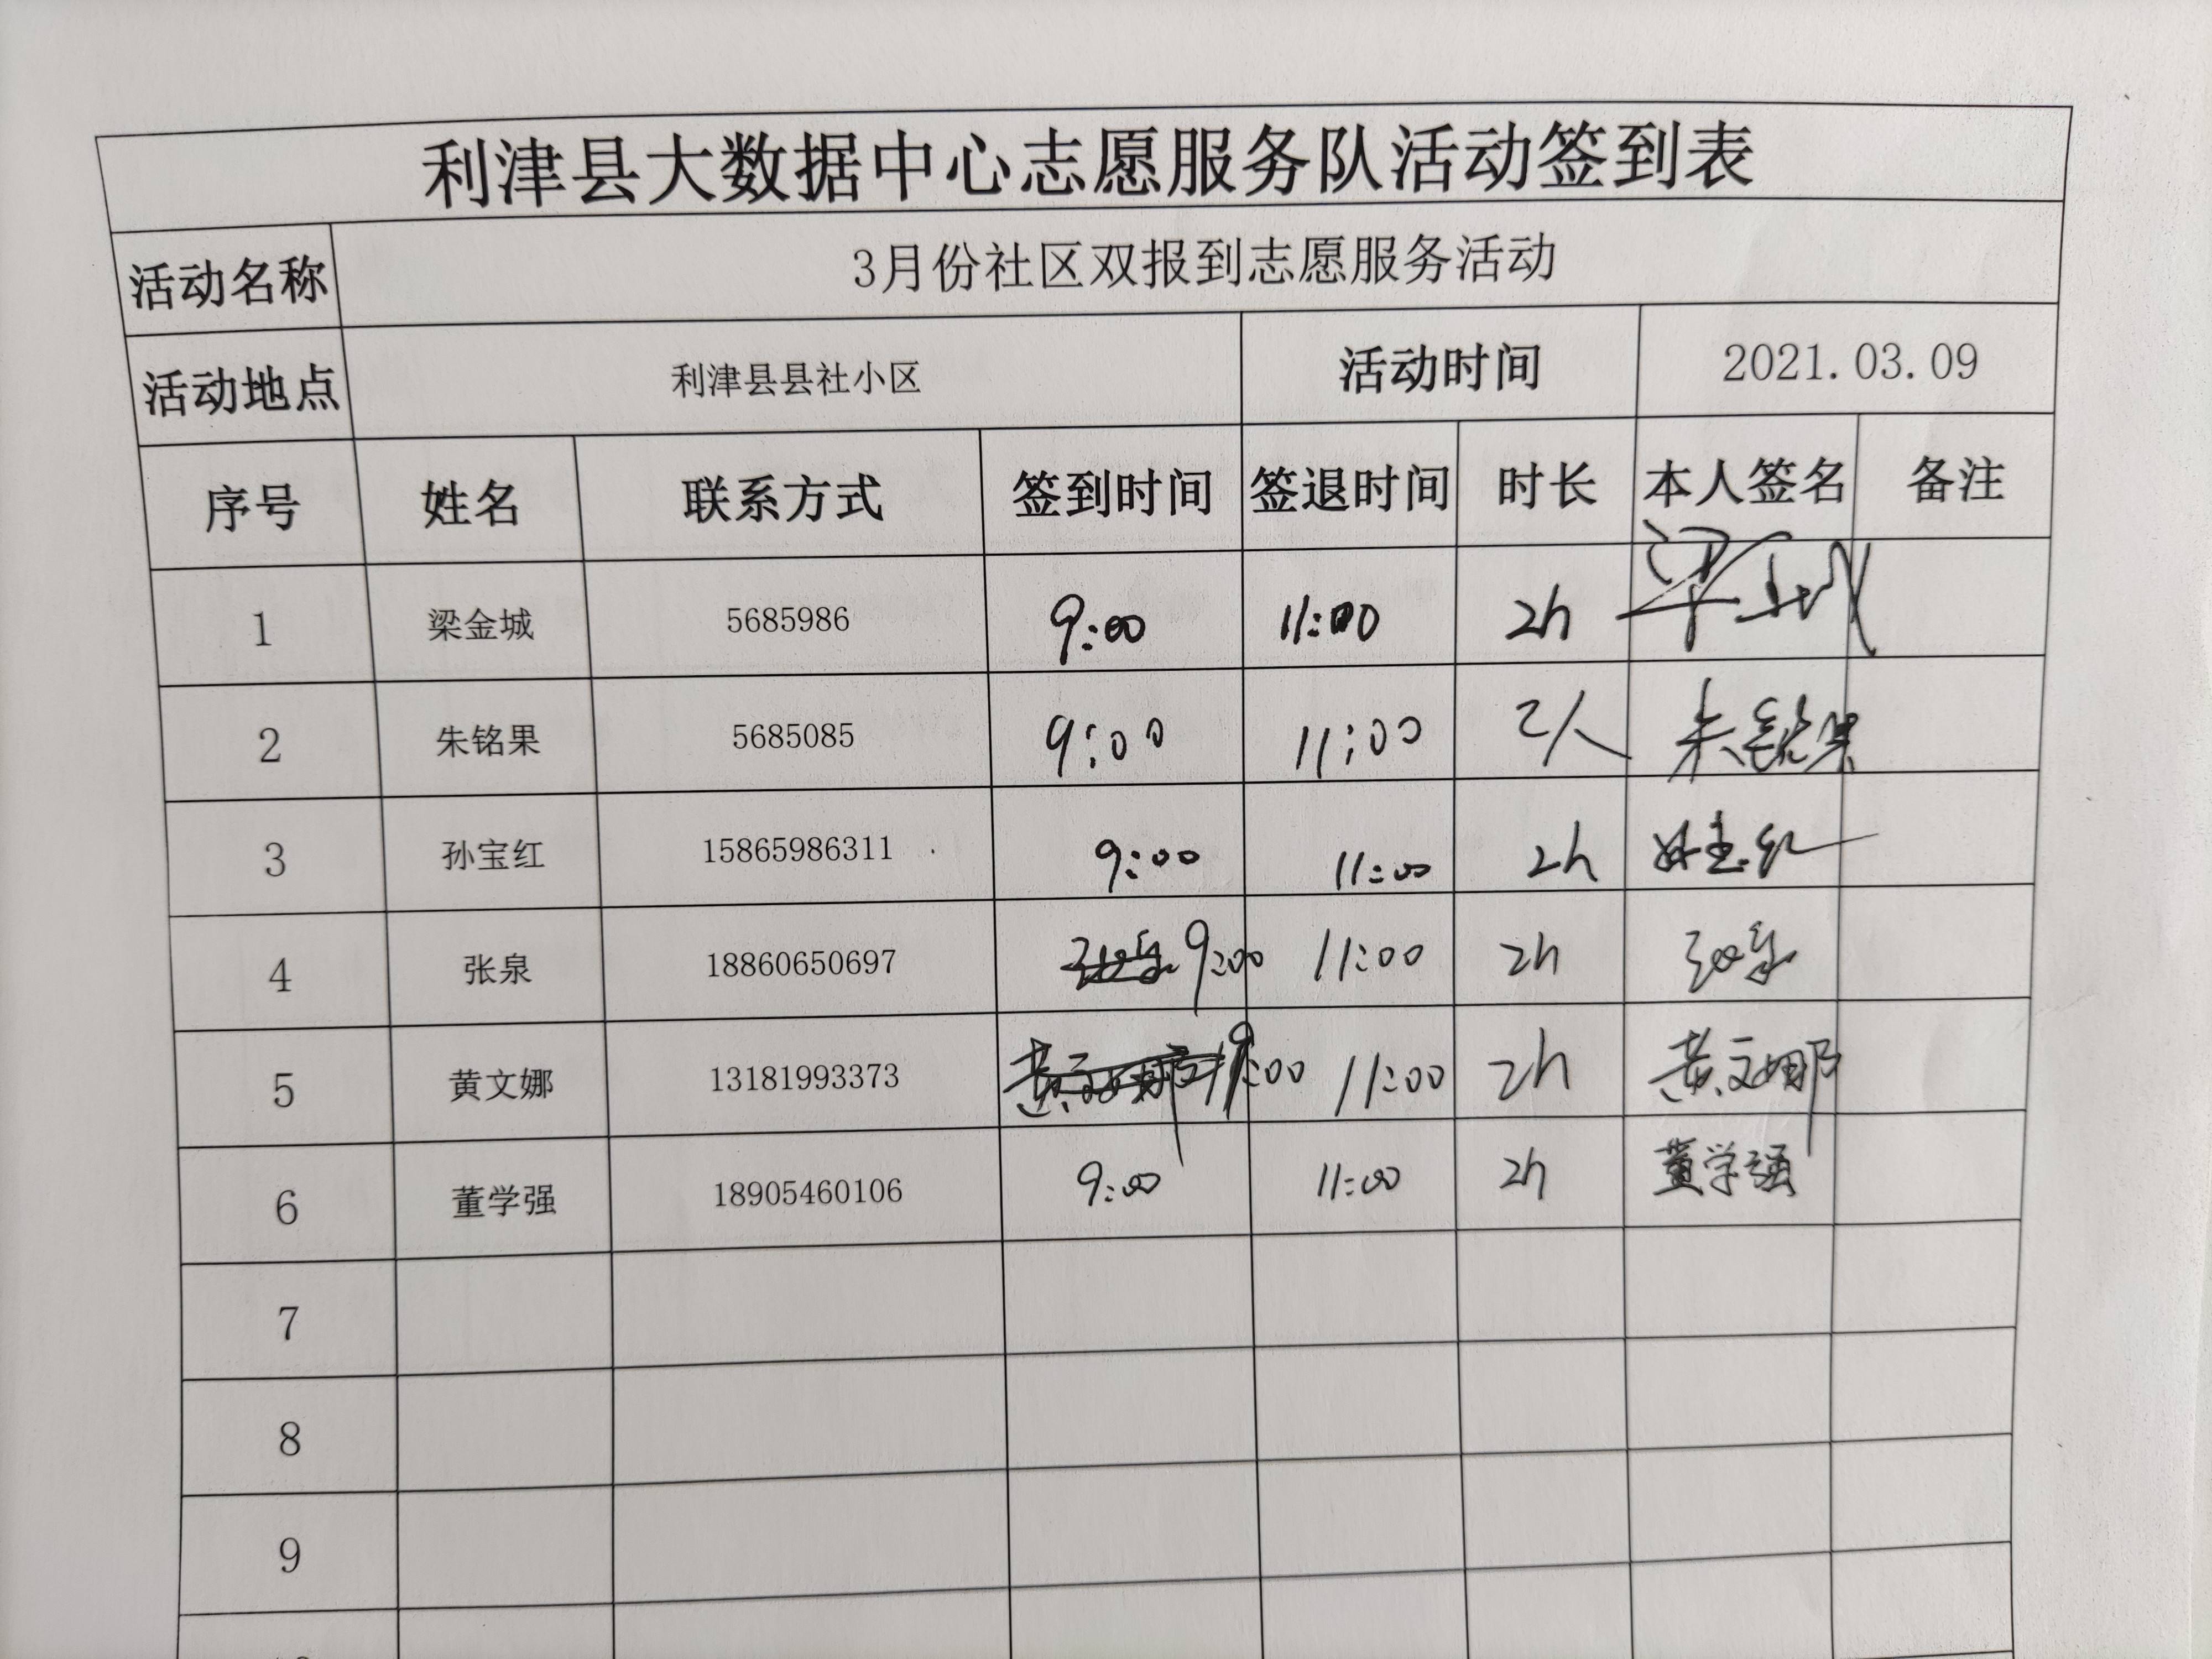 利津县大数据中心志愿服务队活动签到表
活动名称 3月份社区双报到志愿服务活动
活动地点 利津县县社小区 活动时间 2021.03.09
序号 姓名 联系方式 签到时间 签退时间 时长 本人签名 备注
1 梁金城 5685986 9:00 11:00 2h 梁金城
2 朱铭果 5685085 9:00 11:00 朱铭果
3 孙宝红 15865986311 9:00 11:00 2h 孙宝红
4 张泉 18860650697 9:00 11:00 2h 张泉
5 黄文娜 13181993373 9:00 11:00 2h 黄文娜
6 董学强 18905460106 9:00 11:00 2h 董学强
7
8
9